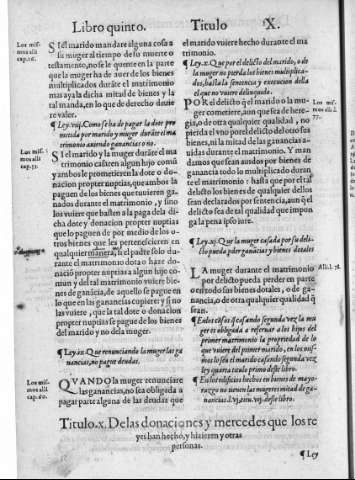 Libro quinto. Titulo IX.
Los mismos alli cap. 16.
SI el marido mandare alguna cosa a
su muger al tiempo de su muerte o
testamento, no se le quente en la parte
que la muger ha de auer de los bienes
multiplicados durãte el matrimonio
mas aya la dicha mitad de bienes y la
tal manda, en lo que de derecho deuie
re valer.
¶ Ley .viij. Como se ha de pagar la dote pro
metida por marido y muger durãte el ma
trimonio auiendo ganancias o no.
Los mismos alli cap. 53.
SI el marido y la muger durãte el ma
trimonio casaren algun hijo comũ
y ambos le prometieren la dote o do-
nacion propter nuptias, que ambos la
paguen de los bienes que tuuieren ga-
nados durante el matrimonio, y sino
los vuiere que basten a la paga dela di
cha dote y donacion propter nuptias
que lo paguen de por medio de los o-
tros bienes que les pertenescieren en
qualquier manera, si el padre solo du-
rante el matrimonio dota o haze do-
naciõ propter nuptias a algun hijo co
mun y del tal matrimonio vuiere bie-
nes de ganãcia, de aquello se pague en
lo que en las ganancias cupiere: y si no
las vuiere, que la tal dote o donacion
propter nuptias se pague de los bienes
del marido y no dela muger.
¶ Ley .ix. Que renunciando la muger las ga
nancias, no pague deudas.
Los mismos alli cap. 60.
QVANDO la muger renunciare
las ganancias, no sea obligada a
pagar parte alguna de las deudas que
el marido vuiere hecho durante el ma
trimonio.
¶ Ley .x. Que por el delicto del marido, o de
la muger no pierda los bienes multiplica-
dos, hasta la sentencia y execucion della
el que no vuiere delinquido.
Los mismos alli. l. 77.
POR el delicto q̃ el marido o la mu-
ger cometiere, aun que sea de here-
gia, o de otra qualquier qualidad, no
pierda el vno por el delicto del otro sus
bienes, ni la mitad de las ganancias a-
uidas durante el matrimonio. Y man
damos que sean auidos por bienes de
ganancia todo lo multiplicado duran
te el matrimonio: hasta que por el tal
delicto los bienes de qualquier dellos
sean declarados por sentencia, aun q̃ el
delicto sea de tal qualidad que impon
ga la pena ipso iure.
¶ Ley .xj. Que la muger casada por su deli-
cto pueda pder ganancias y bienes dotales
Alli. l. 78.
LA muger durante el matrimonio
por delicto pueda perder en parte
o en todo sus bienes dotales, o de ga-
nancia, o de otra qualquier qualidad q̃
sean.
ger es obligada a reseruar a los hijos del
primer matrimonio la propiedad de lo
que vuiere del primer marido, en los mis-
mos lo es el marido casando segunda vez
ley quarta titulo primo deste libro.
¶ En los edificios hechos en bienes de mayo-
razgo no tienen las mugeres mitad de ga-
nancias.
Titulo.x. De las donaciones y mercedes que los re
yes han hecho, y hizieren y otras
personas.
¶ Ley